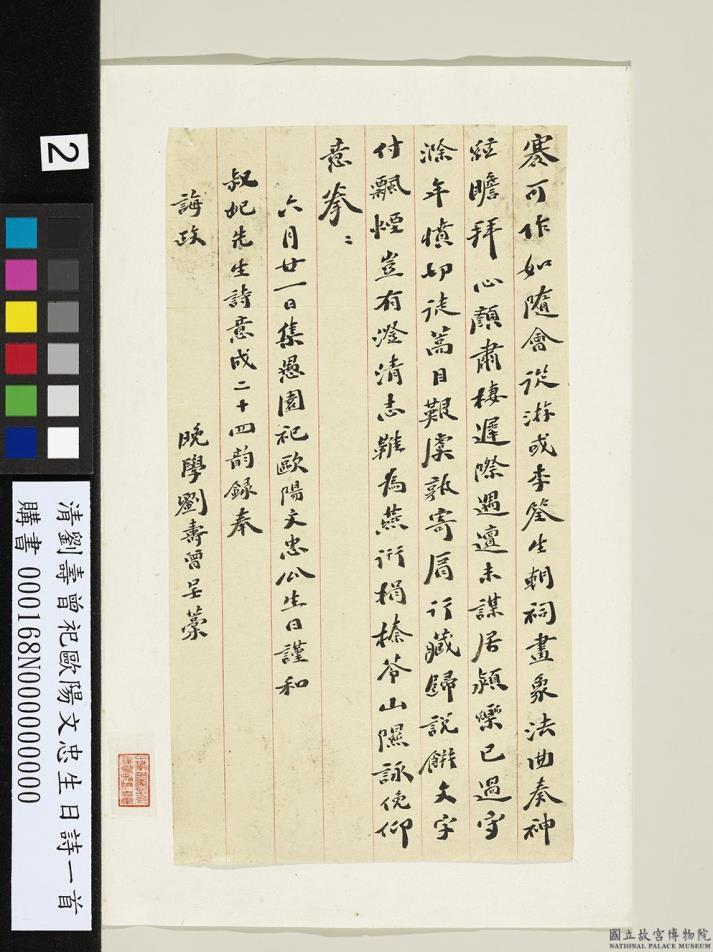 褰可作如隨會從游或李筌生朝祠畫象法曲奏神
絃瞻拜心顏肅棲遲際遇邅未謀居潁爍已過守
滁年憤切徒蒿目艱虞孰寄肩行藏歸說餅文字
付飄煙豈有澄清志難為燕衎楬榛苓山隰詠俛仰
意拳〻
六月廿一日集愚園祀歐陽文忠公生日謹和
叔妃先生詩意成二十四韵録奉
誨政
晚學劉壽曾呈藳
2
清劉壽曾祀歐陽文忠生日詩一首
購書 000168N000000000
國立故宮博物院
NATIONAL PALACE MUSEUM